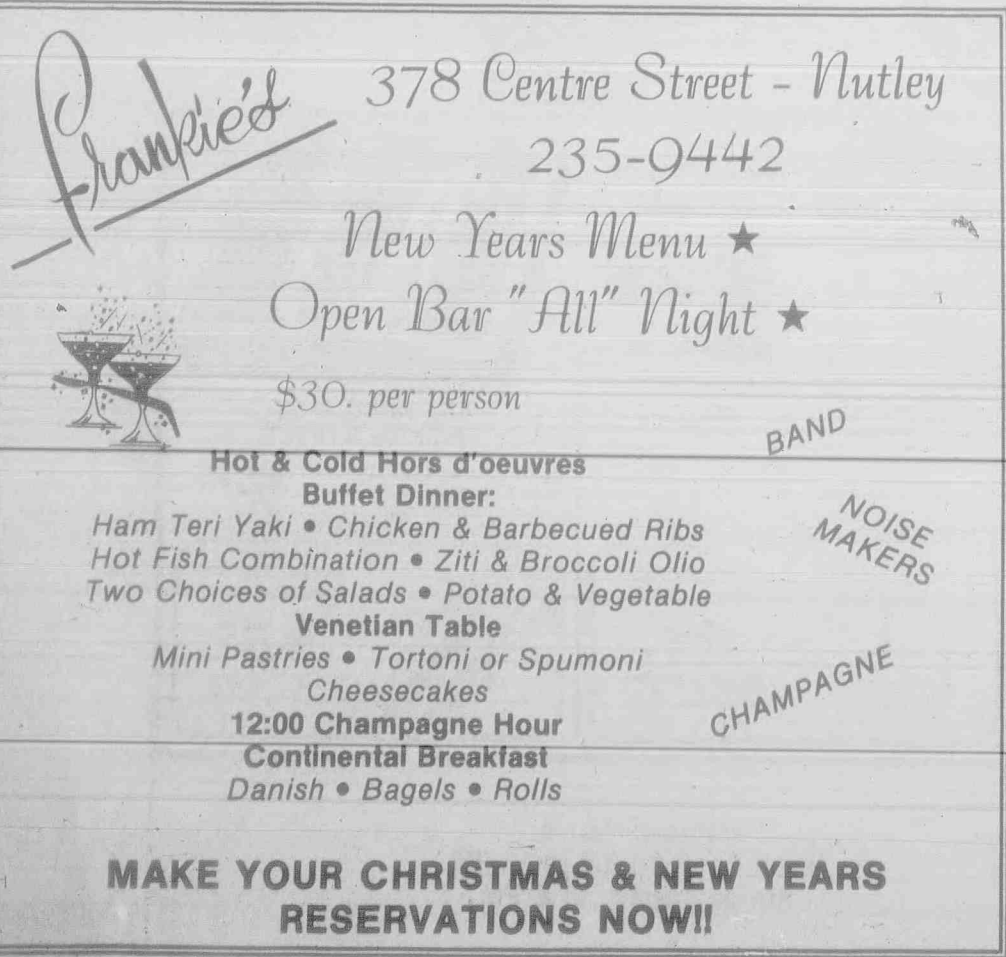 Frankie's
378 Centre Street - Nutley
235-9442
New Years Menu ★
Open Bar "All" Night ★
$30. per person
BAND
Hot & Cold Hors d'oeuvres
Buffet Dinner:
Ham Teri Yaki • Chicken & Barbecued Ribs
Hot Fish Combination • Ziti & Broccoli Olio
Two Choices of Salads • Potato & Vegetable
NOISE
MAKERS
Venetian Table
Mini Pastries • Tortoni or Spumoni
Cheesecakes
CHAMPAGNE
12:00 Champagne Hour
Continental Breakfast
Danish • Bagels • Rolls
MAKE YOUR CHRISTMAS & NEW YEARS
RESERVATIONS NOW!!